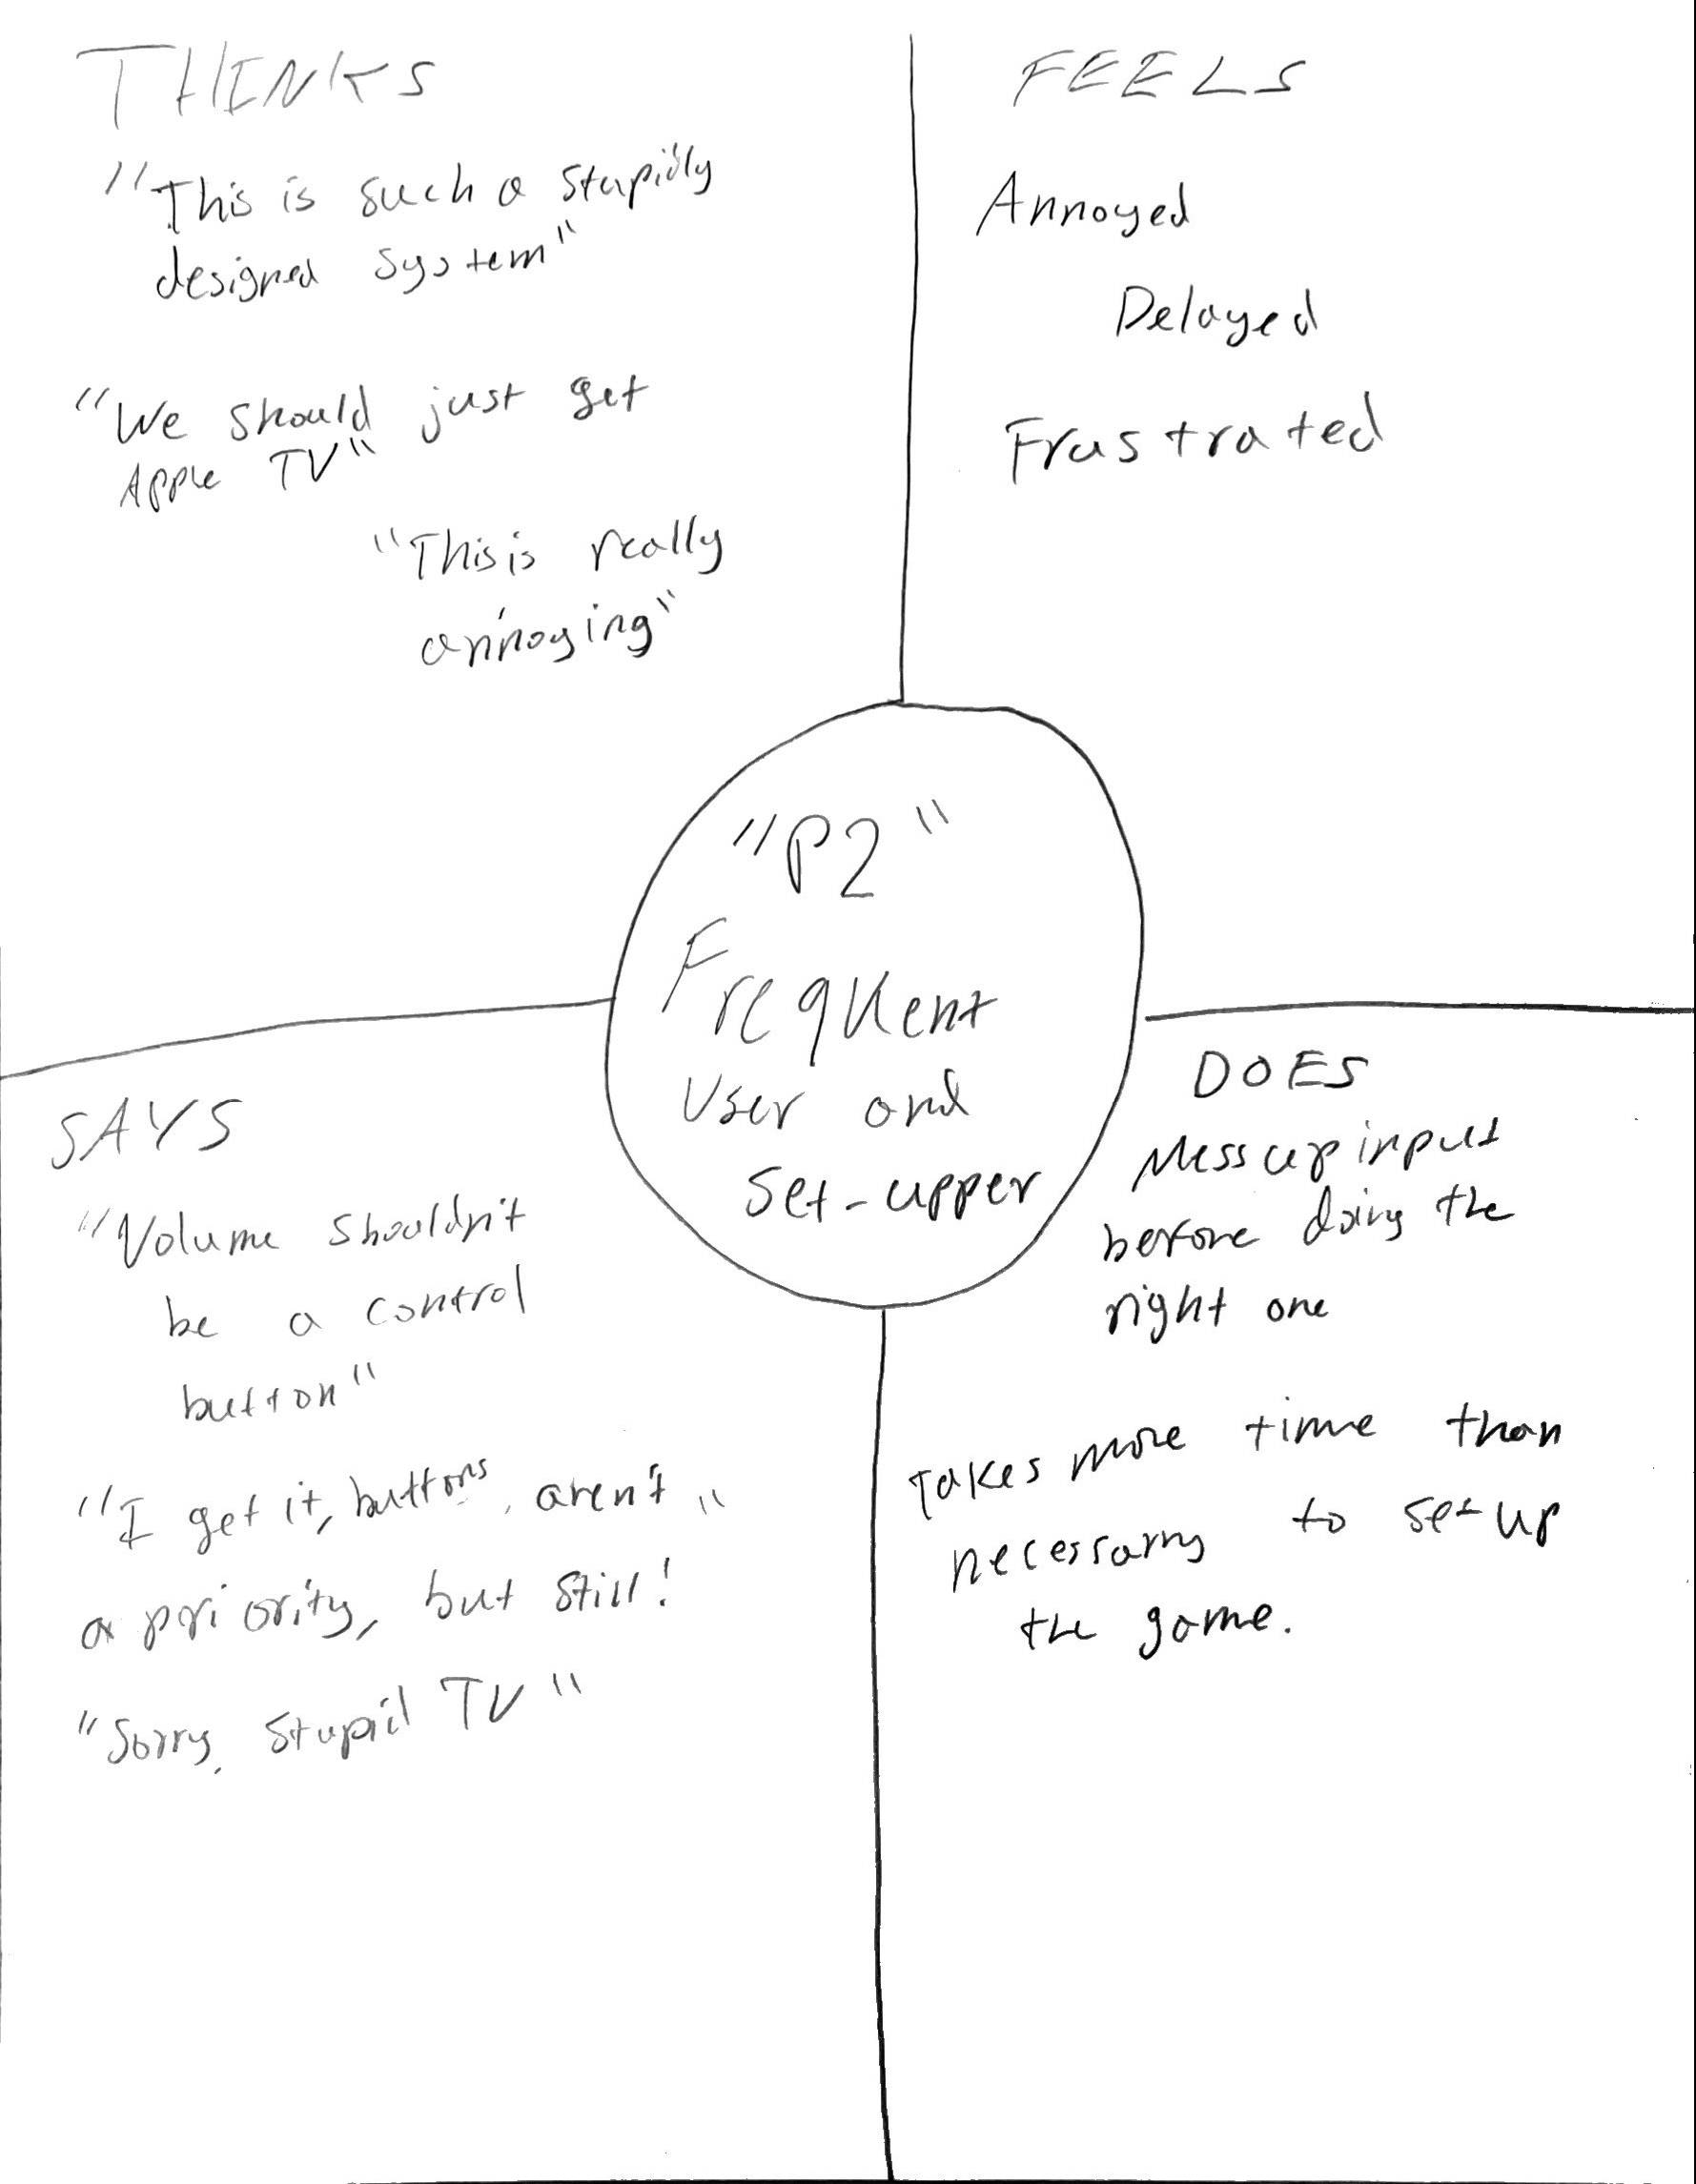 THINKS
"This is such a stupidly
designed system"
"We should just get
Apple TV"
"This is really
annoying"
FEELS
Annoyed
Delayed
Frustrated
"P2"
Frequent
User and
Set-upper
SAYS
"Volume shouldn't
be a control
button"
"I get it, buttons aren't "
a priority, but still!
"Sorry, stupid TV"
DOES
Mess up input
before doing the
right one
Takes more time than
necessary to set up
the game.